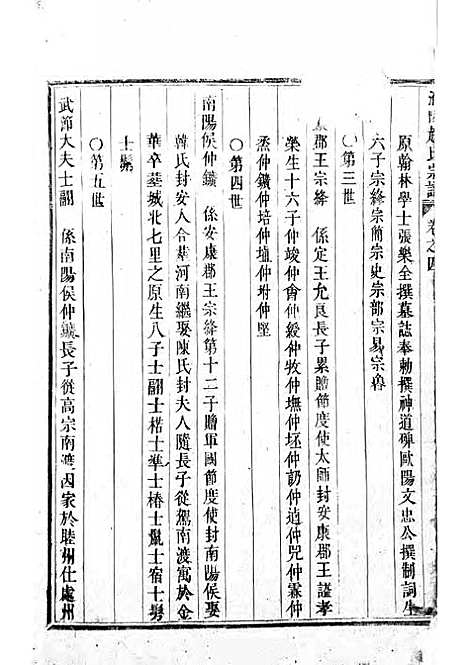 趙氏宗譜 卷之四
原翰林學士張樂全撰墓誌奉勅撰神道碑歐陽文忠公撰制詞生
六子宗絳宗簡宗史宗部宗易宗魯
○第三世
郡王宗絳 係定王允良長子累贈節度使太師封安康郡王諡孝
榮生十六子仲竣仲會仲綬仲牧仲撫仲坯仲防仲逍仲咒仲霖仲
烝仲鑛仲培仲壚仲坿仲堅
○第四世
南陽侯仲鑛 係安康郡王宗絳第十二子贈軍國節度使封南陽侯娶
韓氏封安人合葬河南繼娶陳氏封夫人隨長子從駕南渡寓於金
華卒葬城北七里之原生八子士翮士楉士準士椿士胤士宿士髣
士髵
○第五世
武節大夫士翮 係南陽侯仲鑛長子從高宗南渡因家於睦州仕處州